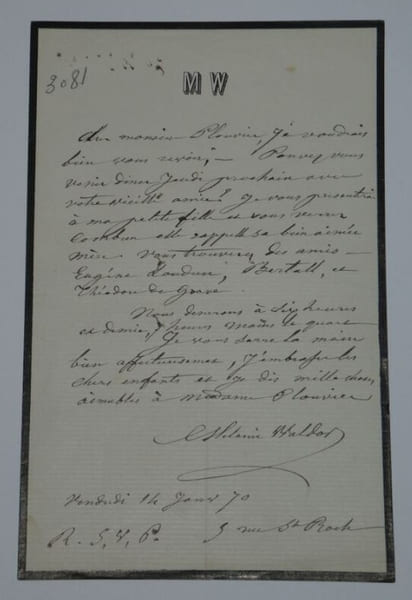 3081
M W
cher monsieur Plouvier, je voudrais
bien vous revoir, — Pouvez vous
venir diner Jeudi prochain avec
votre vieille amie? je vous présenterai
à ma petite fille et vous verrez
combien elle rappelle sa bien aimée
mère. vous trouverez des amis —
Eugène Loudun, Bertall, et
Théodore de Grave.
Nous dinerons à six heures
et demie, heures moins le quart
Je vous serre la main
bien affectueusement, J'embrasse les
chers enfants et je dis mille choses
aimables à madame Plouvier
Mélanie Waldor
Vendredi 14 Janv 70
R. S. V. P. 5 rue St Roch